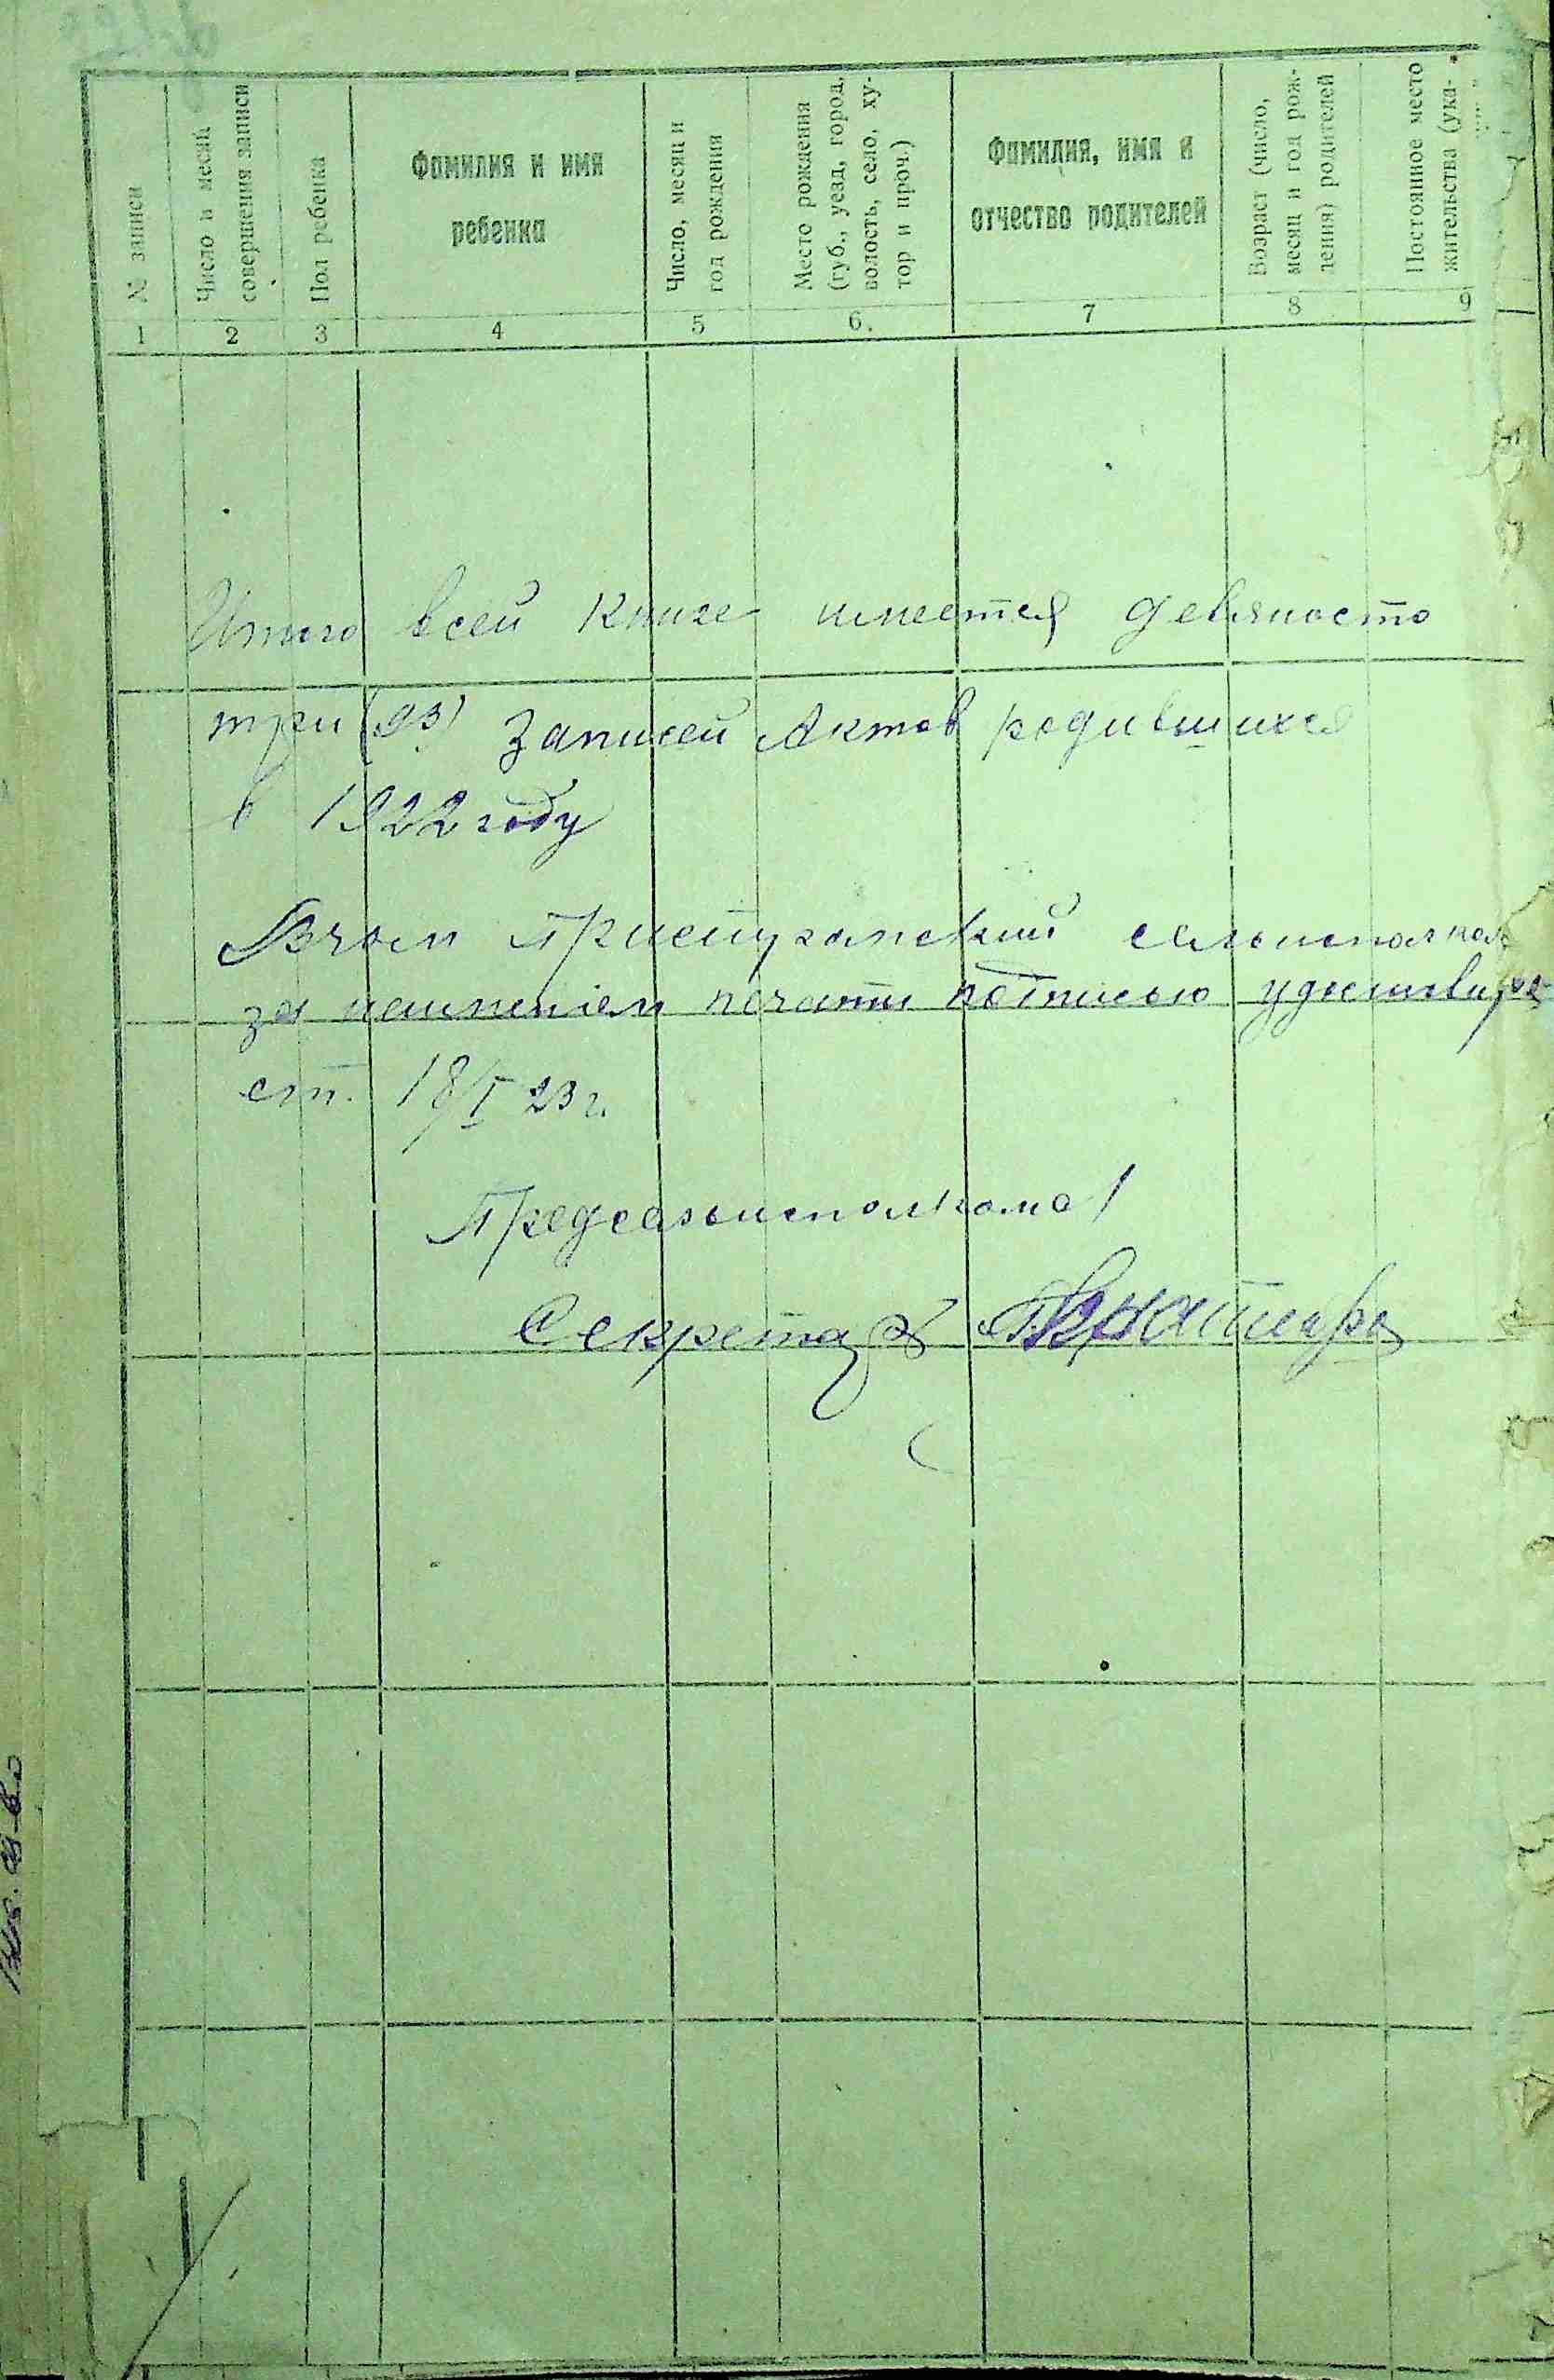 № записи
Число и месяц
совершения записи
Пол ребенка
Фамилия и имя
ребенка
Число, месяц и
год рождения
Место рождения
(губ., уезд, город,
волость, село, ху-
тор и проч.)
Фамилия, имя и
отчество родителей
Возраст (число,
месяц и год рож-
дения) родителей
Постоянное место
жительства (ука-
1 2 3 4 5 6. 7 8 9
Итого всей книге имеется девяносто
три (93) Записей Актов родившихся
в 1922 году
Вчом
за печати подписью
ст. 18/I 23 г.
Предсельисполкома
Секретарь